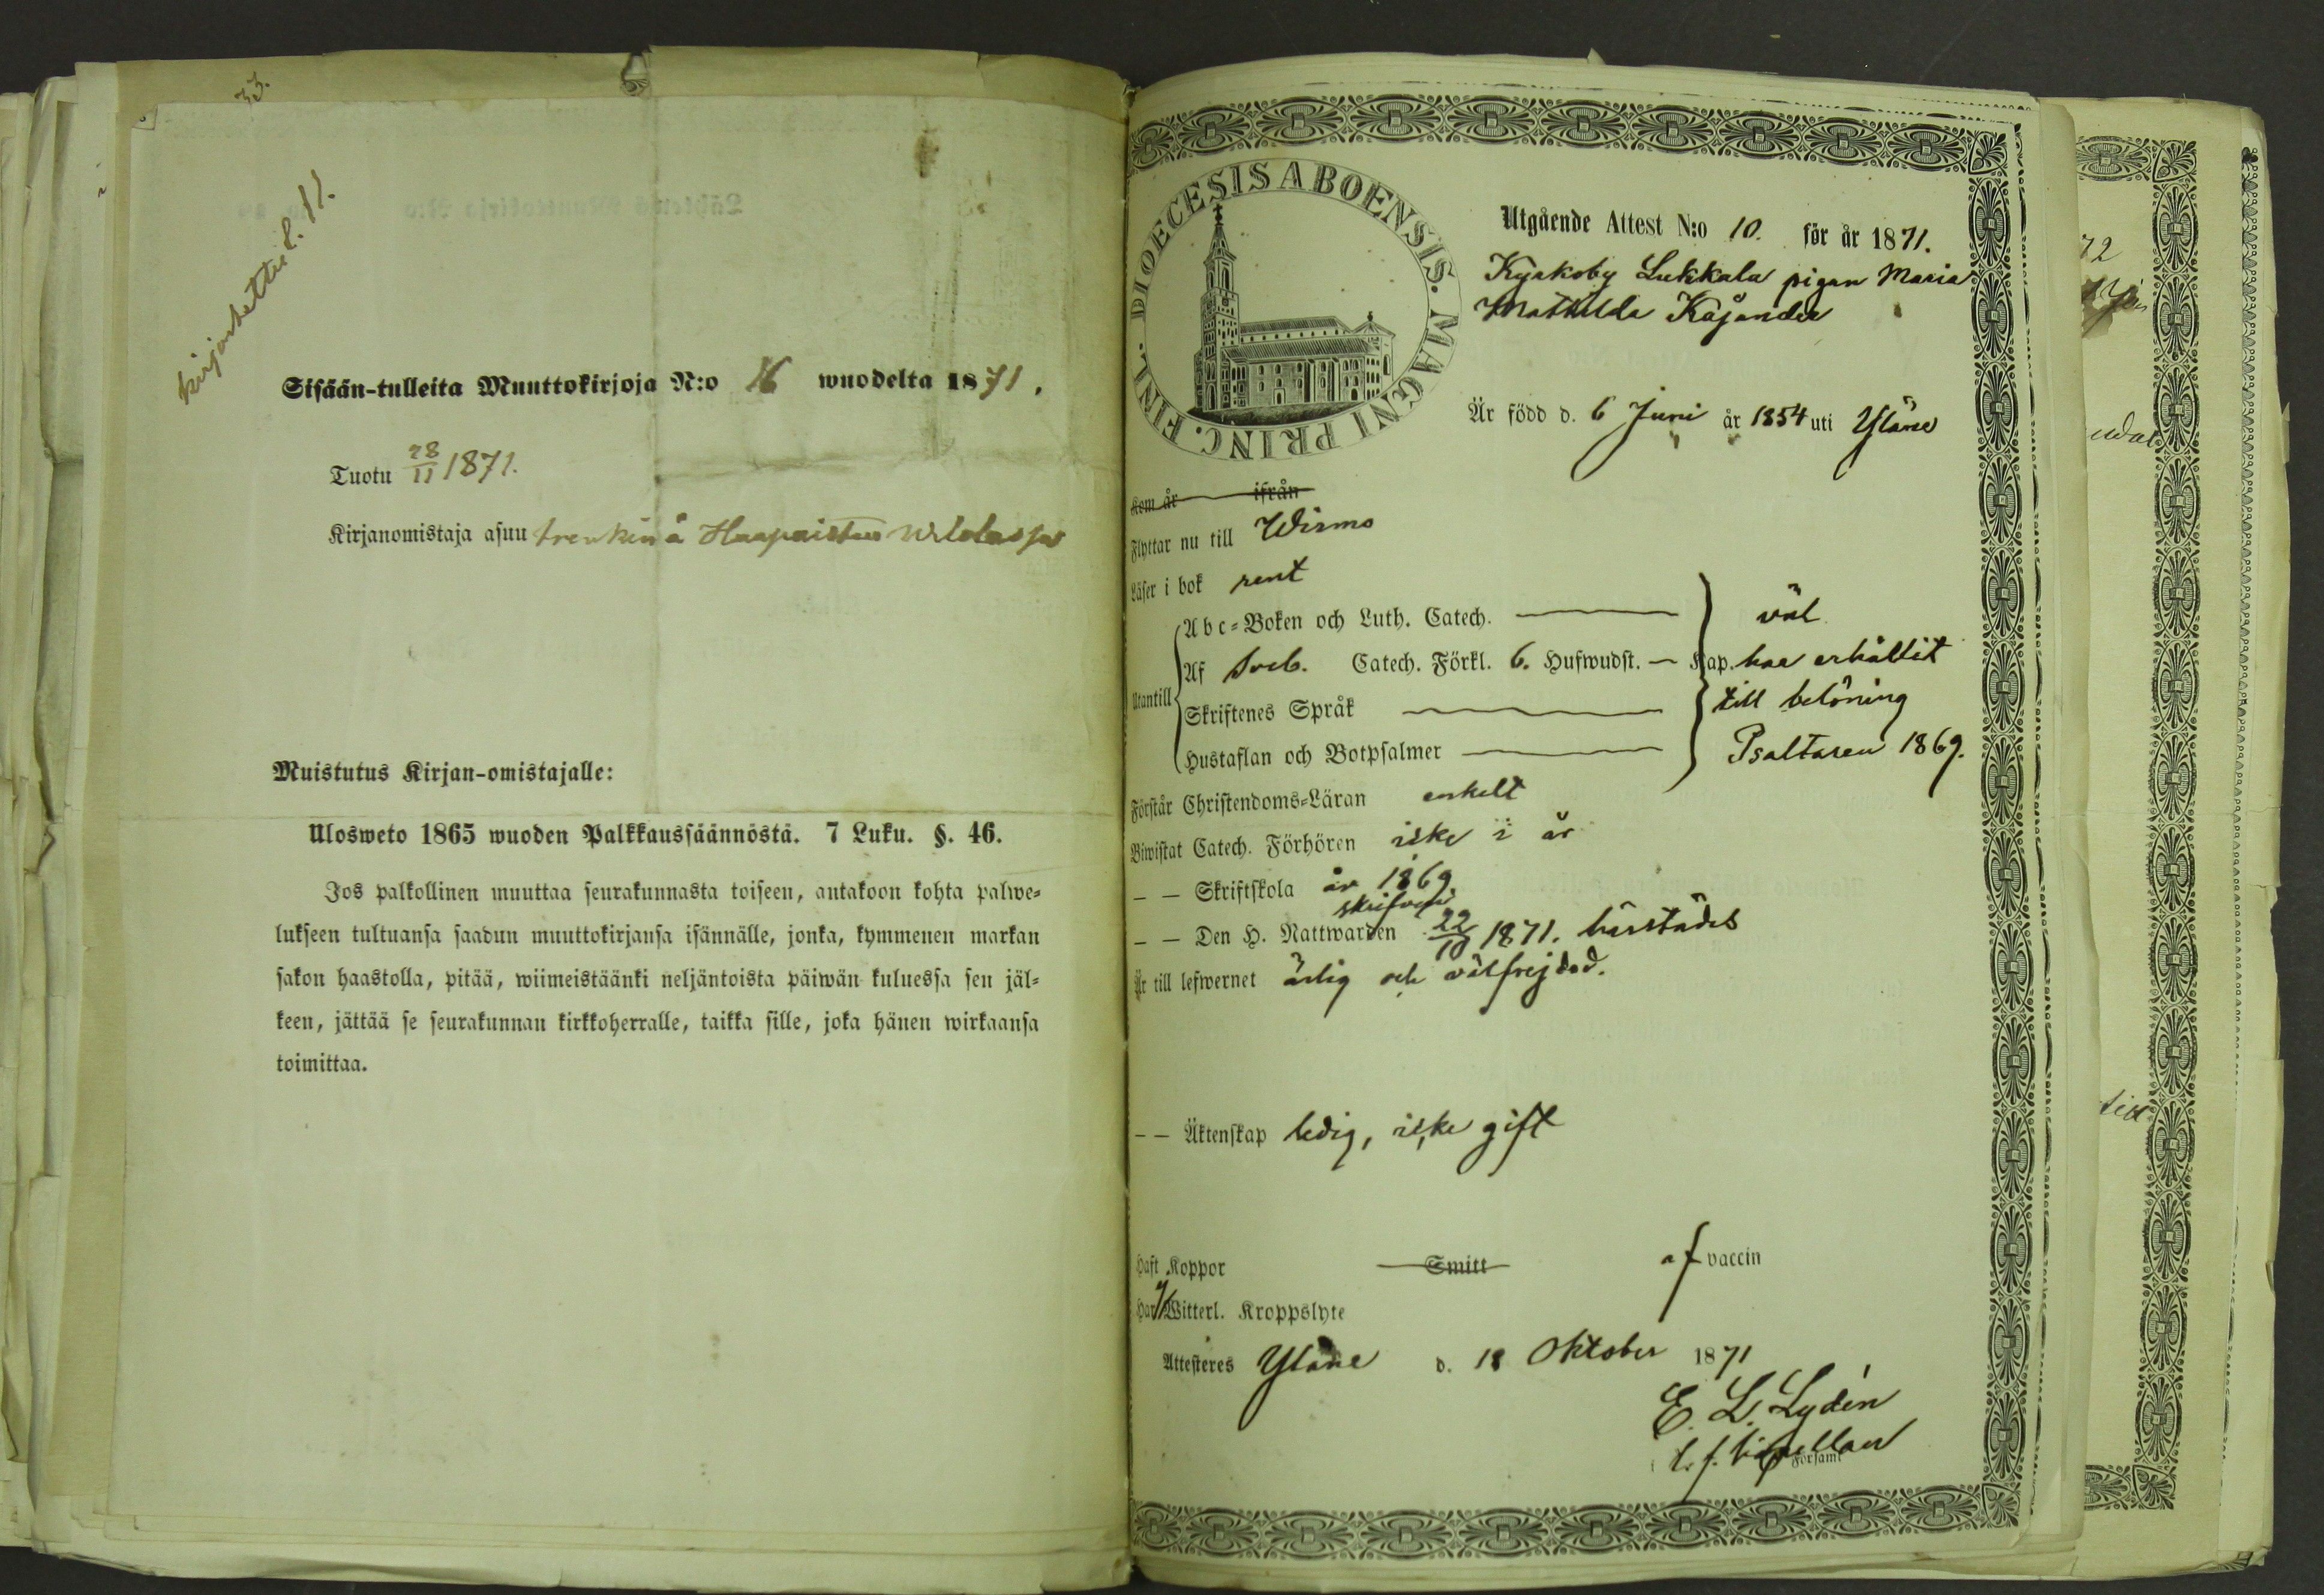 33.
kirjoitettu l. 11.
Sisään-tulleita Muuttokirjoja N:o 16 wuodelta 1871.
Tuotu 28/11 1871.
Kirjanomistaja asuu trenkinä Haapaisten
Muistutus Kirjan-omistajalle:
Ulosweto 1865 wuoden Palkkaussäännöstä. 7 Luku. §. 46.
Jos palkollinen muuttaa seurakunnasta toiseen, antakoon kohta palwe=
lukseen tultuansa saadun muuttokirjansa isännälle, jonka, kymmenen markan
sakon haastolla, pitää, wiimeistäänki neljäntoista päiwän kuluessa sen jäl=
keen, jättää se seurakunnan kirkkoherralle, taikka sille, joka hänen wirkaansa
toimittaa.
DIOECESIS ABOENSIS. MAGNI PRINC. FINL.
Utgående Attest N:o 10. för år 1871.
Kyrkoby Lukkala pigan Maria
Mathilda Kajander
Är född d. 6 Juni år 1854 uti Yläne
Kom år ifrån
Flyttar nu till Wirmo
Läser i bok rent
Utantill
Abc=Boken och Luth. Catech. väl
Af Sveb. Catech. Förkl. 6. Hufwudst. — Kap. har erhållit
Skriftenes Språk till belöning
Hustaflan och Botpsalmer Psaltaren 1869.
Förstår Christendoms=Läran enkelt
Biwistat Catech. Förhören icke i år
— — Skriftskola år 1869
— — Den H. Nattwarden 22/10 1871. härstädes
Är till lefwernet ärlig och välfrejdad.
— — Äktenskap ledig, icke gift
Haft Koppor Smitt af vaccin
Har Witterl. Kroppslyte
Attesteres Yläne d. 18 Oktober 1871
E. L. Lydén
t. f. kapellan
Församl
72
till